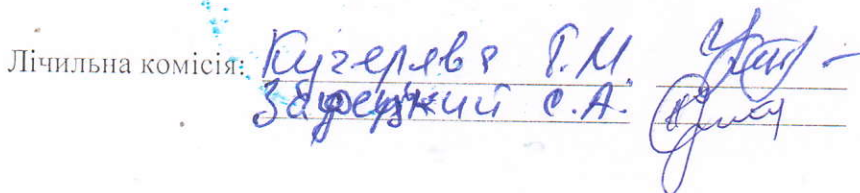 Лічильна комісія: Кучерява Т.М
Зарецький С.А.